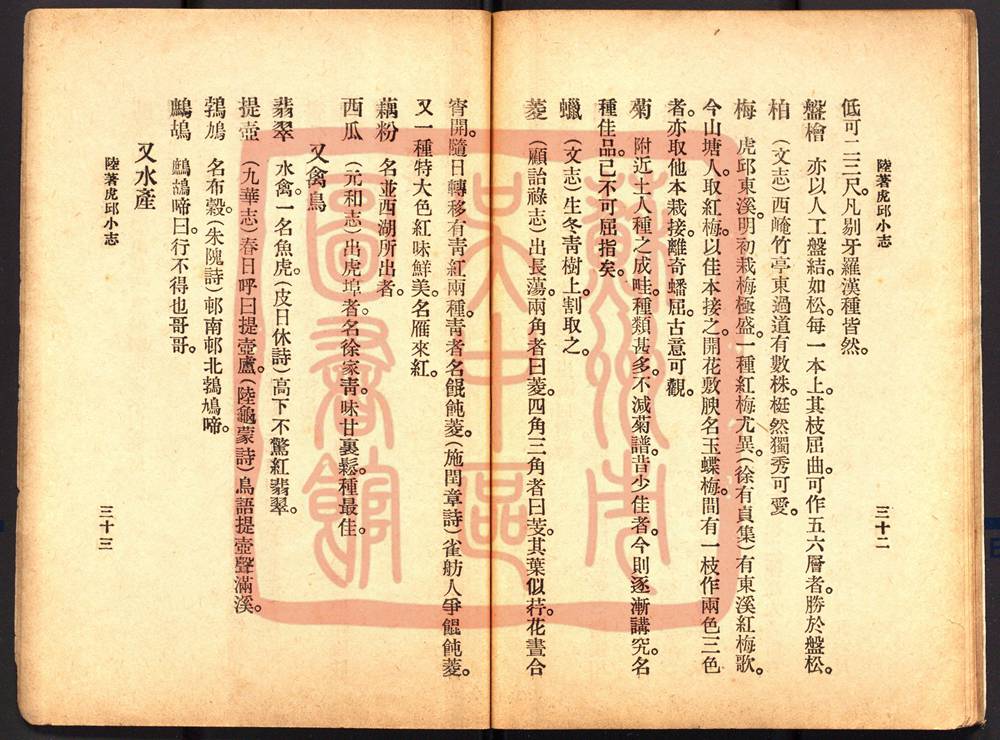 陸著虎邱小志
三十二
低可二三尺。凡剔牙羅漢種皆然。
盤檜　亦以人工盤結。如松。每一本上。其枝屈曲。可作五六層者。勝於盤松。
柏　(文志)西崦竹亭東過道有數株。梃然獨秀可愛。
梅　虎邱東溪。明初栽梅極盛。一種紅梅尤異。(徐有貞集)有東溪紅梅歌。
今山塘人。取紅梅。以佳本接之。開花敷腴名玉蝶梅。間有一枝作兩色三色
者。亦取他本栽接。離奇蟠屈。古意可觀。
菊　附近土人種之成畦。種類甚多。不減菊譜。昔少佳者。今則逐漸講究。名
種佳品。已不可屈指矣。
蠟　(文志)生冬靑樹上。割取之。
菱　(顧詒祿志)出長蕩。兩角者曰菱。四角三角者曰芰。其葉似荇。花晝合
宵開。隨日轉移。有靑紅兩種。靑者名餛飩菱。(施閏章詩)雀舫人爭餛飩菱。
又一種特大色紅味鮮美。名雁來紅。
藕粉　名並西湖所出者。
西瓜　(元和志)出虎埠者。名徐家靑。味甘裏鬆。種最佳。
又禽鳥
翡翠　水禽。一名魚虎。(皮日休詩)高下不驚紅翡翠。
提壺　(九華志)春日呼曰提壺盧。(陸龜蒙詩)鳥語提壺聲滿溪。
鵓鳩　名布穀。(朱隗詩)邨南邨北鵓鳩啼。
鷓鴣　鷓鴣啼曰。行不得也哥哥。
又水產
陸著虎邱小志
三十三
蘇州市
吳中區
圖書館